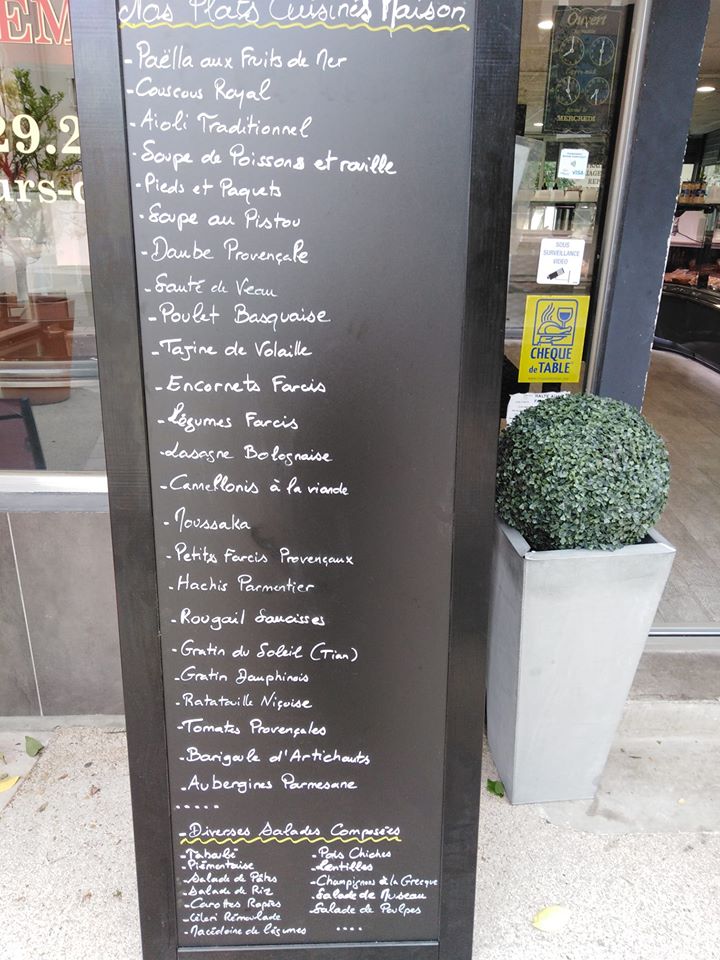 Nos Plats Cuisinés Maison
- Paëlla aux Fruits de Mer
- Couscous Royal
- Aioli Traditionnel
- Soupe de Poissons et rouille
- Pieds et Paquets
- Soupe au Pistou
- Daube Provençale
- Sauté de Veau
- Poulet Basquaise
- Tajine de Volaille
- Encornets Farcis
- Légumes Farcis
- Lasagne Bolognaise
- Cannellonis à la viande
- Moussaka
- Petits Farcis Provençaux
- Hachis Parmentier
- Rougail Saucisses
- Gratin du Soleil (Tian)
- Gratin Dauphinois
- Ratatouille Niçoise
- Tomates Provençales
- Barigoule d'Artichauts
- Aubergines Parmesane
.....
- Diverses Salades Composées
- Taboulé
- Piémontaise
- Salade de Pâtes
- Salade de Riz
- Carottes Rapées
- Céleri Rémoulade
- Macédoine de légumes
- Pois Chiches
- Lentilles
- Champignons à la Grecque
- Salade de Museau
- Salade de Poulpes
....
EM
29.2
urs-
Ouvert
MERCREDI
VISA
SOUS
SURVEILLANCE
VIDEO
CHÈQUE
de TABLE